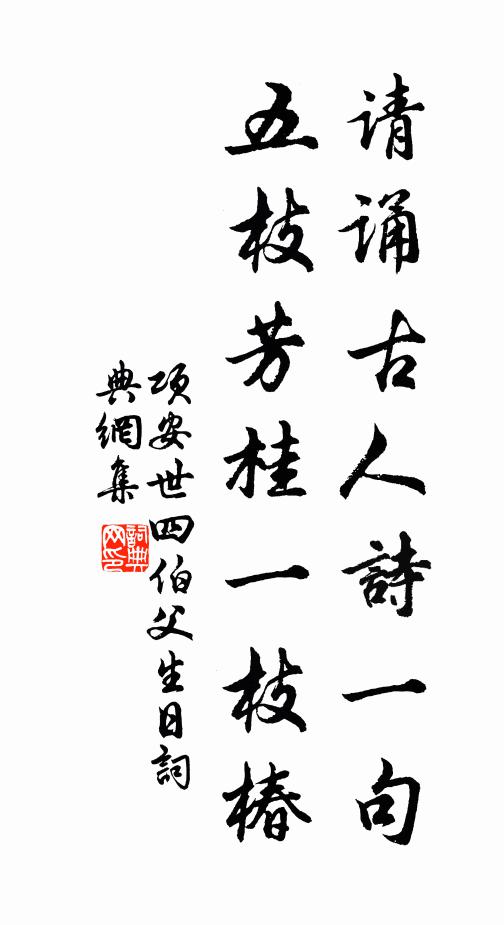 请诵古人詩一句
五枝芳桂一枝椿
項安世四伯父生日詞
典網集
詞典
网印